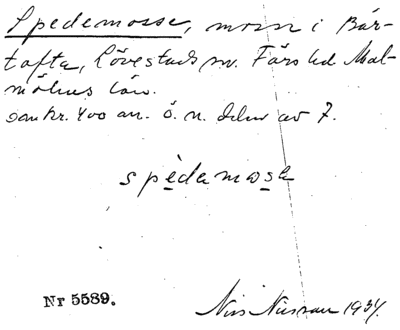 Spedemosse, mosse i Bär-
tofta, Lövestads sn. Färs hd Mal-
möhus län.
omkr. 400 m. ö. n. delen av 7.
spèdamosa
Nr 5589.
Nils Nilsson 1934.